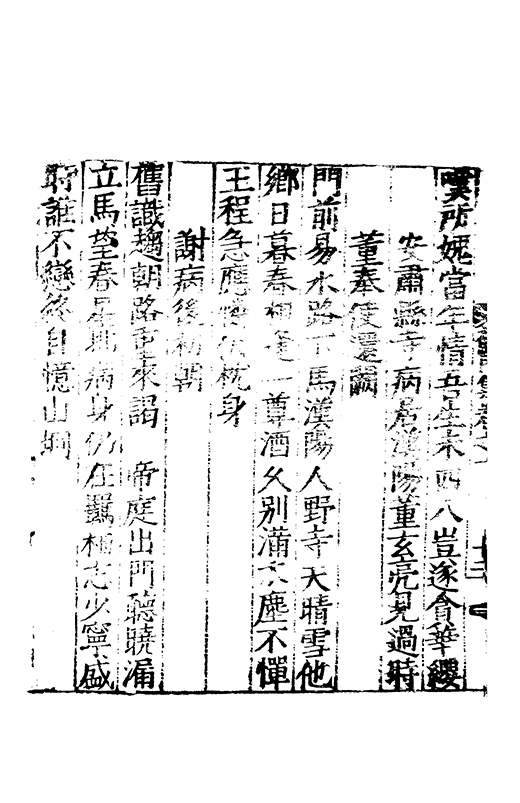 嘆所媿當年情吾生未四八豈遂貪華纓
安肅縣寺病居漢陽董玄亮見過時
董奉使還闕
門前易水路下馬漢陽人野寺天晴雪他
鄉日暮春相逢一尊酒久別滿衣塵不憚
王程急應憐伏枕身
謝病後初朝
舊識趨朝路重來謁 帝庭出門聽曉漏
立馬望春星興病身仍在羈栖志少寧盛
時誰不戀終自憶山坰
十三